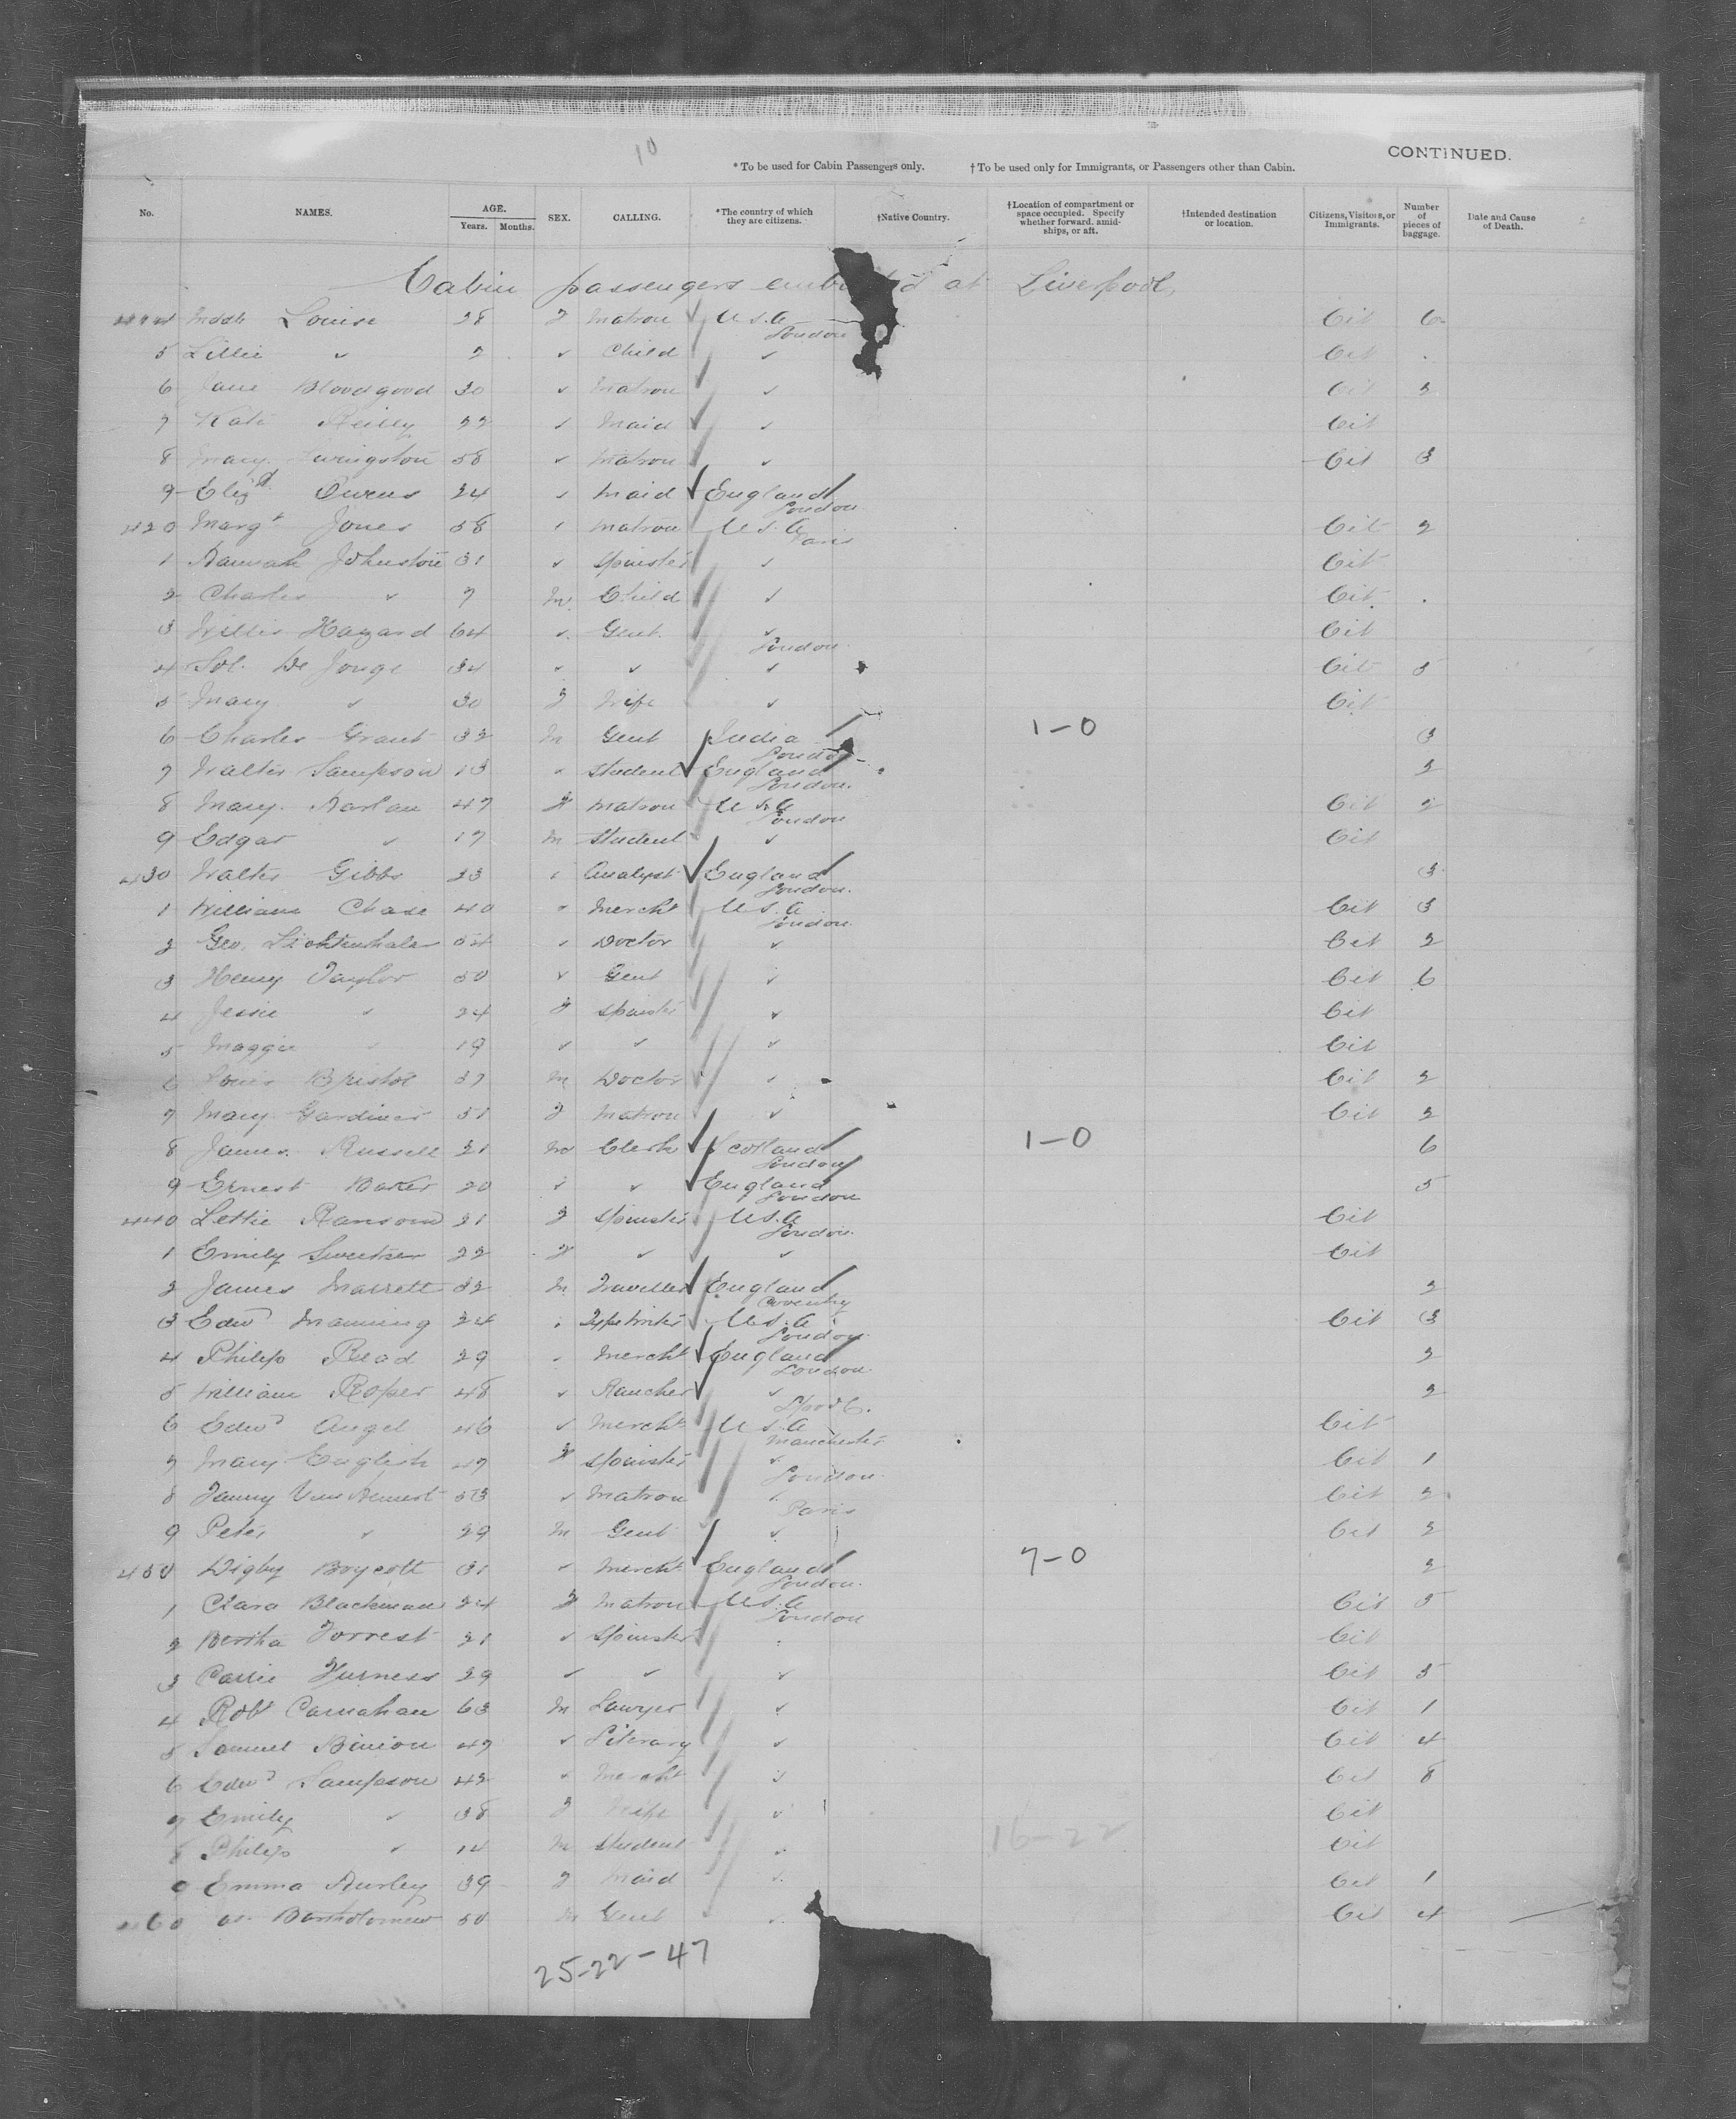 10
CONTINUED.
* To be used for Cabin Passengers only. † To be used only for Immigrants, or Passengers other than Cabin.
No. NAMES. AGE. Years. Months. SEX. CALLING. *The country of which they are citizens. †Native Country. †Location of compartment or space occupied. Specify whether forward, amidships, or aft. †Intended destination or location. Citizens, Visitors, or Immigrants. Number of pieces of baggage. Date and Cause of Death.
Cabin passengers at Liverpool,
Louise 28 Matron U.S.A London Cit 6
5 Lillie " 2 " Child " Cit
6 Jane Bloodgood 30 " Matron " Cit 2
7 Kate Reilly 22 " Maid " Cit
8 Mary Livingston 58 " Matron " Cit 3
9 Eliz Owens 24 " Maid England London
420 Margt Jones 58 " Matron U.S.A Paris Cit 2
1 Hannah Johnston 31 " Spinster " Cit
2 Charles " 7 M Child " Cit
3 Willis Hazard 64 " Gent " London Cit
4 Sol. De Jonge 34 " " " Cit 5
5 Mary " 30 F Wife " Cit
6 Charles Grant 32 M Gent India London 1-0 3
7 Walter Sampson 13 " Student England London 2
8 Mary Harlan 47 F Matron U.S.A London Cit 2
9 Edgar " 17 M Student " Cit
430 Walter Gibbs 23 " Analyst England London 3
1 William Chase 40 " Mercht U.S.A London Cit 3
2 Geo. 54 " Doctor " Cit 2
3 Henry Taylor 50 " Gent " Cit 6
4 Jessie " 24 F Spinster " Cit
5 Maggie " 19 " " " Cit
6 Louis Bristol 37 M Doctor " Cit 2
7 Mary Gardiner 51 F Matron " Cit 2
8 James Russell 21 M Clerk Scotland London 1-0 6
9 Ernest Baker 20 " " England London 5
440 Lettie Ransom 21 F Spinster U.S.A London Cit
1 Emily Sweetser 22 F " " Cit
2 James Marrett 32 M Traveller England Coventry 2
3 Edwd Manning 24 " Typewriter U.S.A London Cit 3
4 Philip Read 29 " Mercht England London 2
5 William Roper 48 " Rancher " L'pool. 2
6 Edwd Angel 46 " Mercht U.S.A Manchester Cit
7 Mary English 47 F Spinster " London Cit 1
8 Fanny 53 " Matron " Paris Cit 2
9 Peter " 29 M Gent " Cit 2
450 Digby Boycott 31 " Mercht England London 7-0 2
1 Clara Blackman 24 F Matron U.S.A London Cit 5
2 Bertha Forrest 21 " Spinster Cit
3 Carrie Furness 29 " " " Cit 5
4 Robt Carnahan 63 M Lawyer " Cit 1
5 Samuel Binion 47 " Literary " Cit 4
6 Edwd Sampson 42 " Mercht " Cit 8
7 Emily " 38 F Wife " Cit
8 Philip " 14 M Student " 16-22 Cit
9 Emma Hurley 39 F Maid " Cit 1
460 Bartholomew 50 M Gent " Cit 4
25-22-47